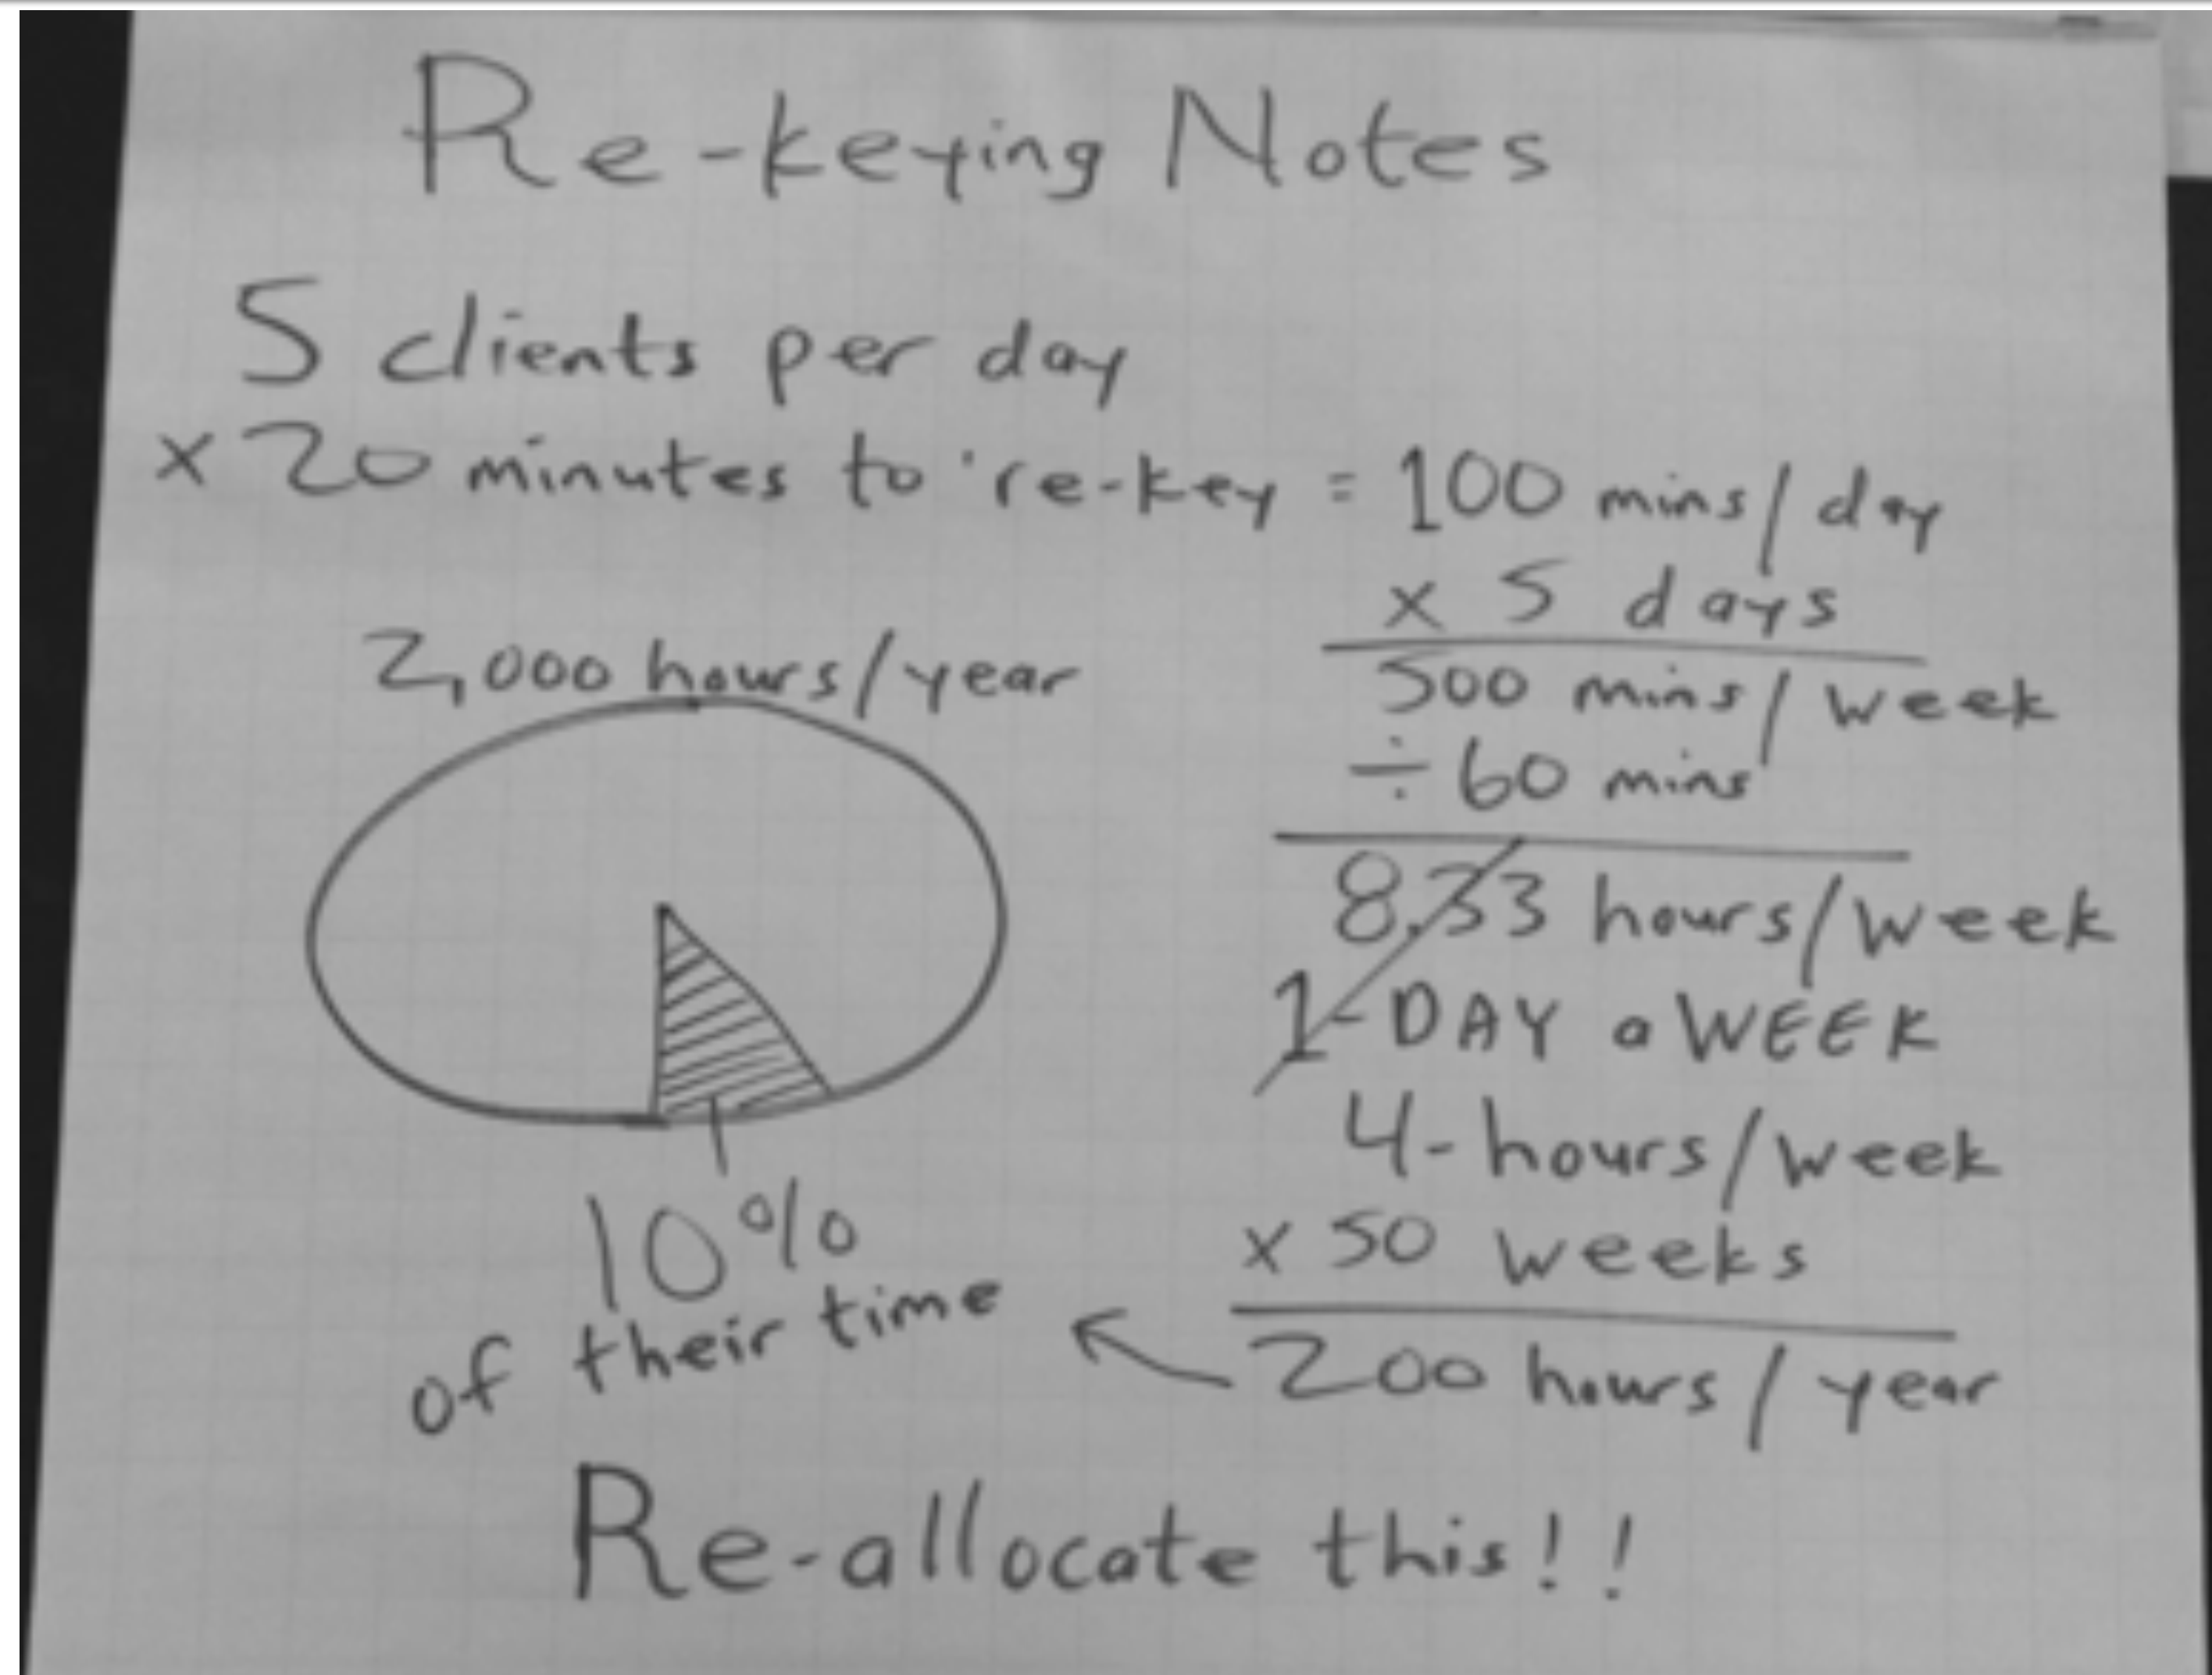 Re-keying Notes
5 clients per day
x 20 minutes to re-key = 100 mins/day
x 5 days
500 mins/week
÷ 60 mins
8.33 hours/week
1-DAY a WEEK
4-hours/week
x 50 weeks
200 hours/year
2,000 hours/year
10%
of their time
Re-allocate this!!